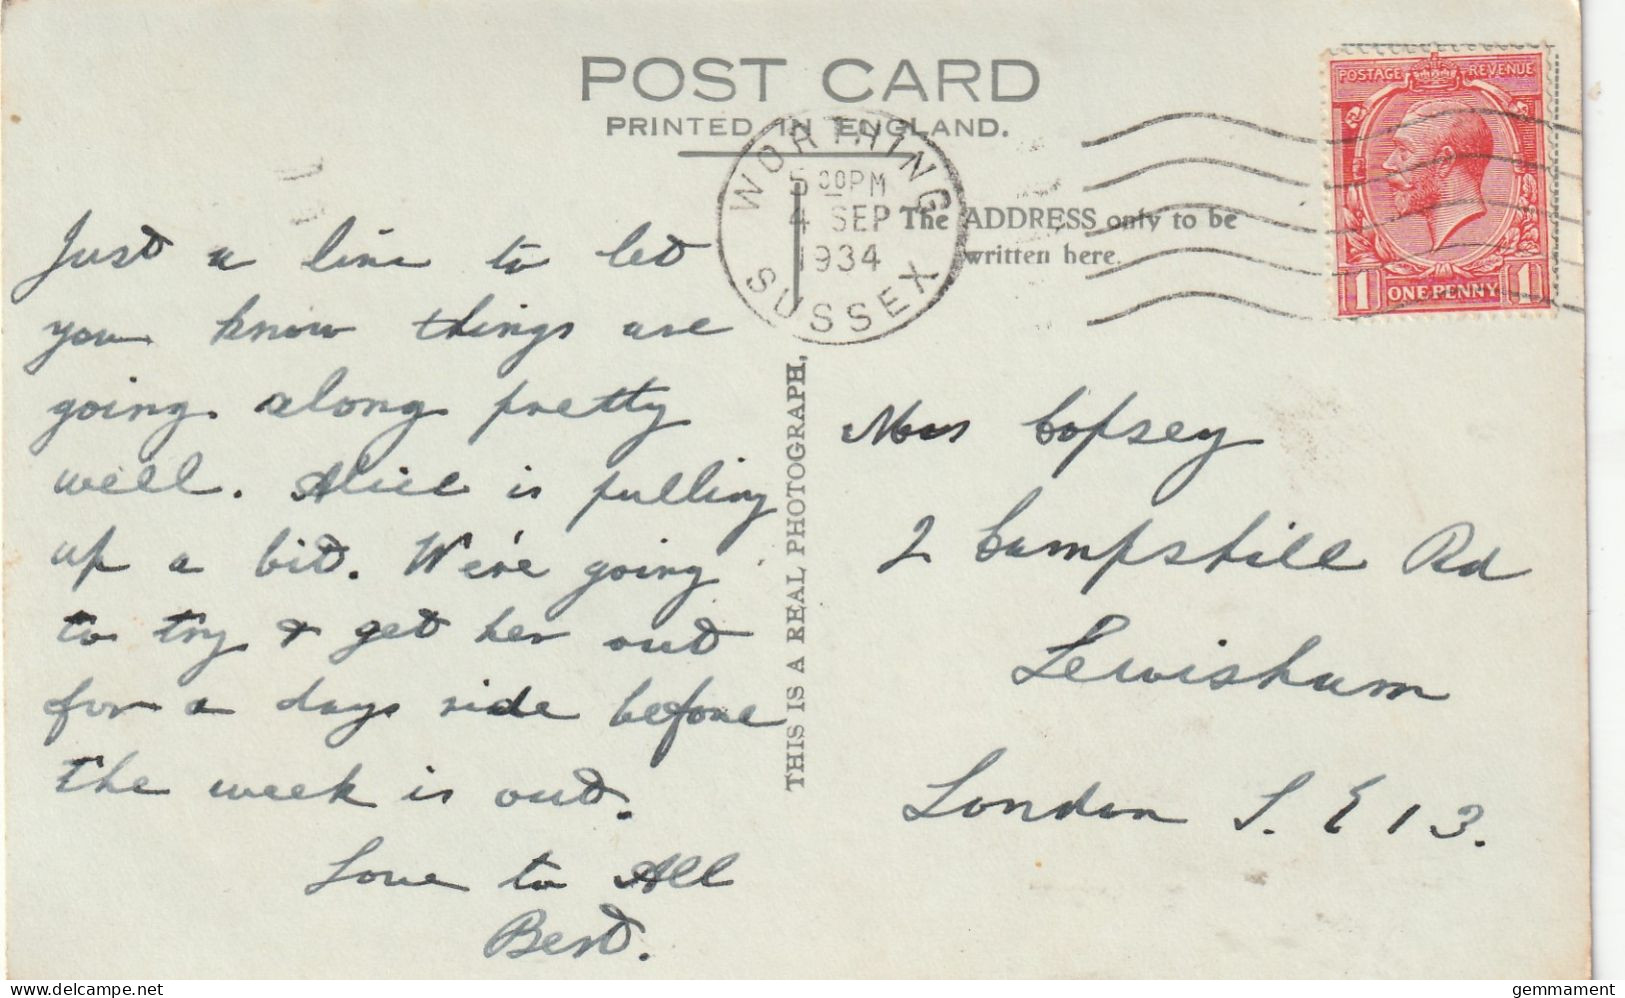 POST CARD
PRINTED IN ENGLAND.
WORTHING
5 00PM
4 SEP
1934
SUSSEX
The ADDRESS only to be
written here.
POSTAGE REVENUE
1 ONE PENNY 1
Just a line to let
you know things are
going along pretty
well. Alice is pulling
up a bit. We're going
to try & get her out
for a days ride before
the week is out.
Love to All
Bert.
THIS IS A REAL PHOTOGRAPH.
Mrs Copsey
2 Campshill Rd
Lewisham
London S. E 13.
gemmament